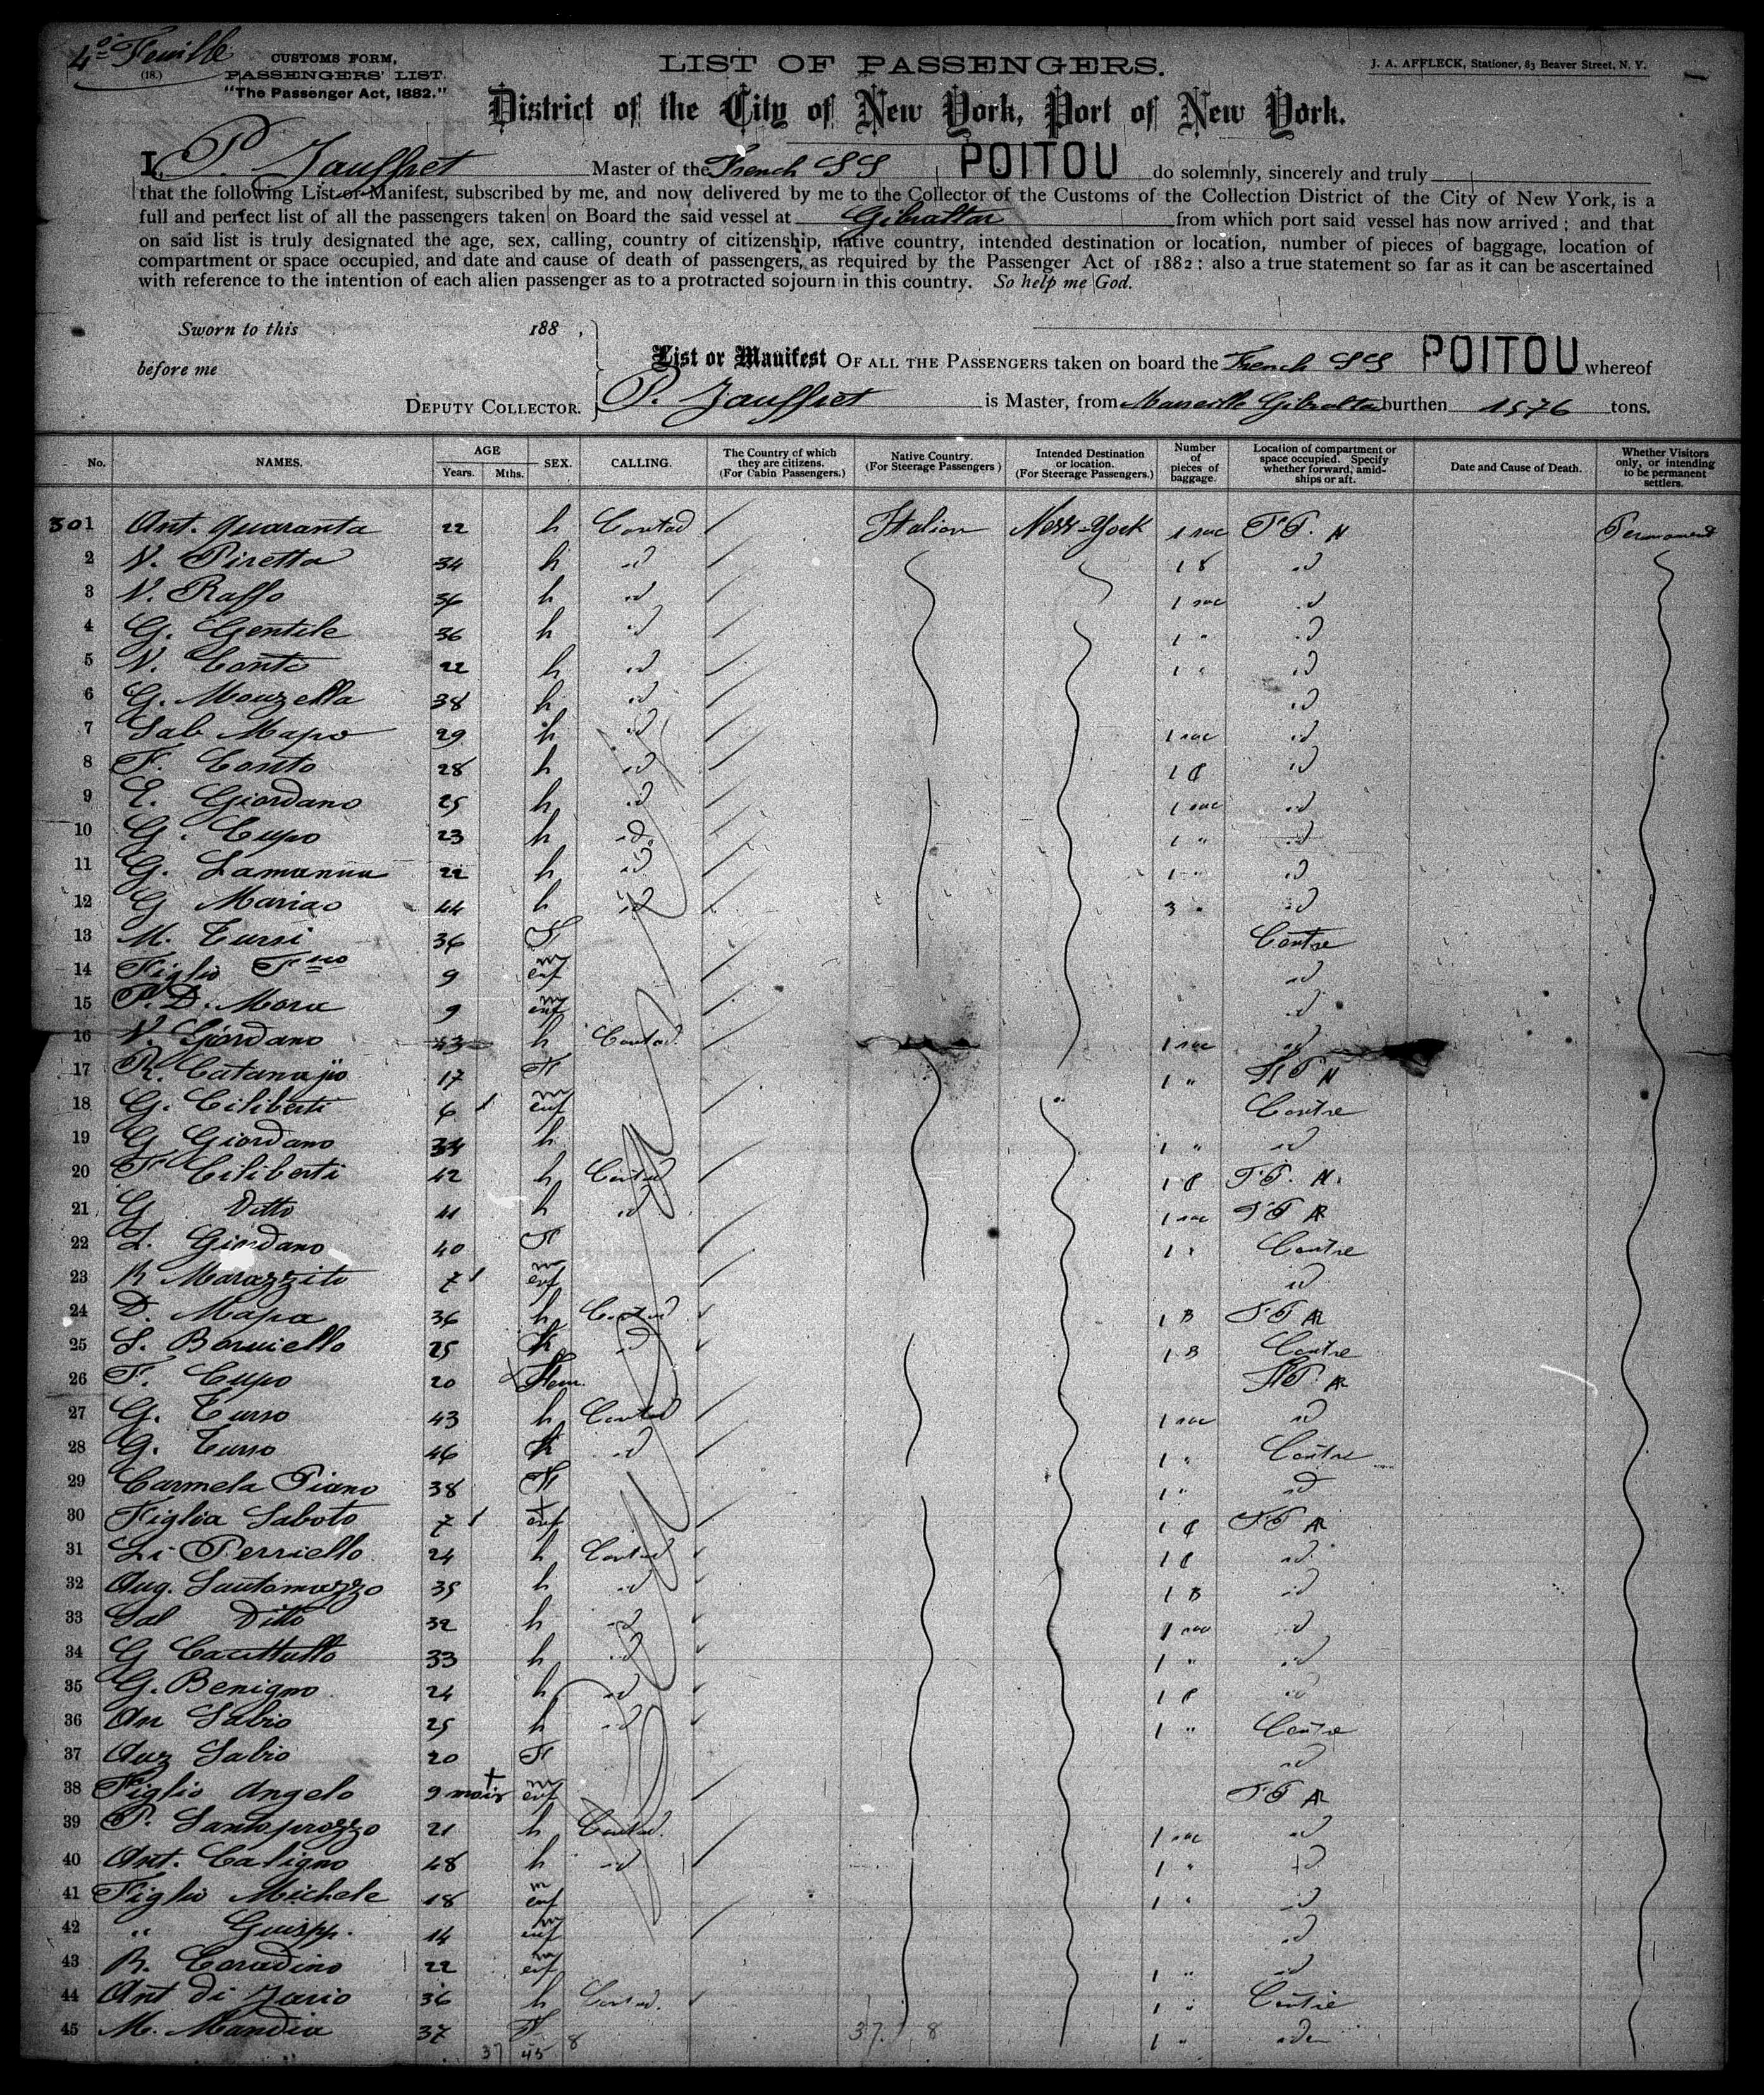 4e Feuille
(18.)
CUSTOMS FORM,
PASSENGERS' LIST.
"The Passenger Act, 1882."
LIST OF PASSENGERS.
J. A. AFFLECK, Stationer, 83 Beaver Street, N. Y.
District of the City of New York, Port of New York.
I, P. Jauffret Master of the French SS POITOU do solemnly, sincerely and truly
that the following List or Manifest, subscribed by me, and now delivered by me to the Collector of the Customs of the Collection District of the City of New York, is a
full and perfect list of all the passengers taken on Board the said vessel at Gibraltar from which port said vessel has now arrived; and that
on said list is truly designated the age, sex, calling, country of citizenship, native country, intended destination or location, number of pieces of baggage, location of
compartment or space occupied, and date and cause of death of passengers, as required by the Passenger Act of 1882; also a true statement so far as it can be ascertained
with reference to the intention of each alien passenger as to a protracted sojourn in this country. So help me God.
Sworn to this 188 ,
before me
DEPUTY COLLECTOR.
List or Manifest OF ALL THE PASSENGERS taken on board the French SS POITOU whereof
P. Jauffret is Master, from Marseille Gibraltar burthen 1576 tons.
No. NAMES. AGE Years. Mths. SEX. CALLING. The Country of which they are citizens. (For Cabin Passengers.) Native Country. (For Steerage Passengers) Intended Destination or location. (For Steerage Passengers.) Number of pieces of baggage. Location of compartment or space occupied. Specify whether forward, amidships or aft. Date and Cause of Death. Whether Visitors only, or intending to be permanent settlers.
301 Ant. Quaranta 22 h Contad Italien New-York 1 sac Permanent
2 V. Piretta 34 h id id
3 V. Raffo 36 h id 1 sac id
4 G. Gentile 36 h id 1 " id
5 V. Conto 22 h id 1 " id
6 G. Mouzella 38 h id id
7 Sab Mapo 29 h id 1 sac id
8 F. Conto 28 h id id
9 E. Giordano 25 h id 1 sac id
10 G. Cupo 23 h id 1 " id
11 G. Lamanna 22 h id 1 " id
12 G Mariao 44 h id 3 " id
13 M. Tursi 36 F Centre
14 Figlio 9 m enf id
15 P. D. Mora 9 m enf id
16 V. Giordano h Contad. 1 sac id
17 17 F 1 "
18 G. Ciliberti 6 m enf Centre
19 G Giordano h 1 " id
20 F Ciliberti 42 h Contad
21 G Ditto 11 h id 1 sac
22 L. Giordano 40 F 1 " Centre
23 R Marazzito 7 m enf id
24 D. Mapa 36 h Contad 1 B
25 S. Borniello 25 id 1 B Centre
26 F. Cupo 20
27 G. Turso 43 h Contad 1 sac id
28 G. Turso 46 id 1 " Centre
29 Carmela Piano 38 F 1 " id
30 Figlia Saboto 7 enf
31 Li Perriello 24 h Contad id
32 Aug. Santomazzo 35 h id 1 B id
33 Sal Ditto 32 h id 1 sac id
34 G 33 h id 1 " id
35 G. Benigno 24 h id id
36 An Sabio 25 h id 1 " Centre
37 Sabio 20 F id
38 Figlio Angelo 9 mois m enf
39 P. 21 h Contad. 1 sac id
40 Ant. Caligno 48 h id 1 " id
41 Figlio Michele 18 m enf 1 " id
42 " Guispp. 14 m enf id
43 R. Coradino 22 m enf 1 " id
44 Ant di 36 h Contad. 1 " Centre
45 M. Mandia 37 F 1 " idem
37 45 8 37 8